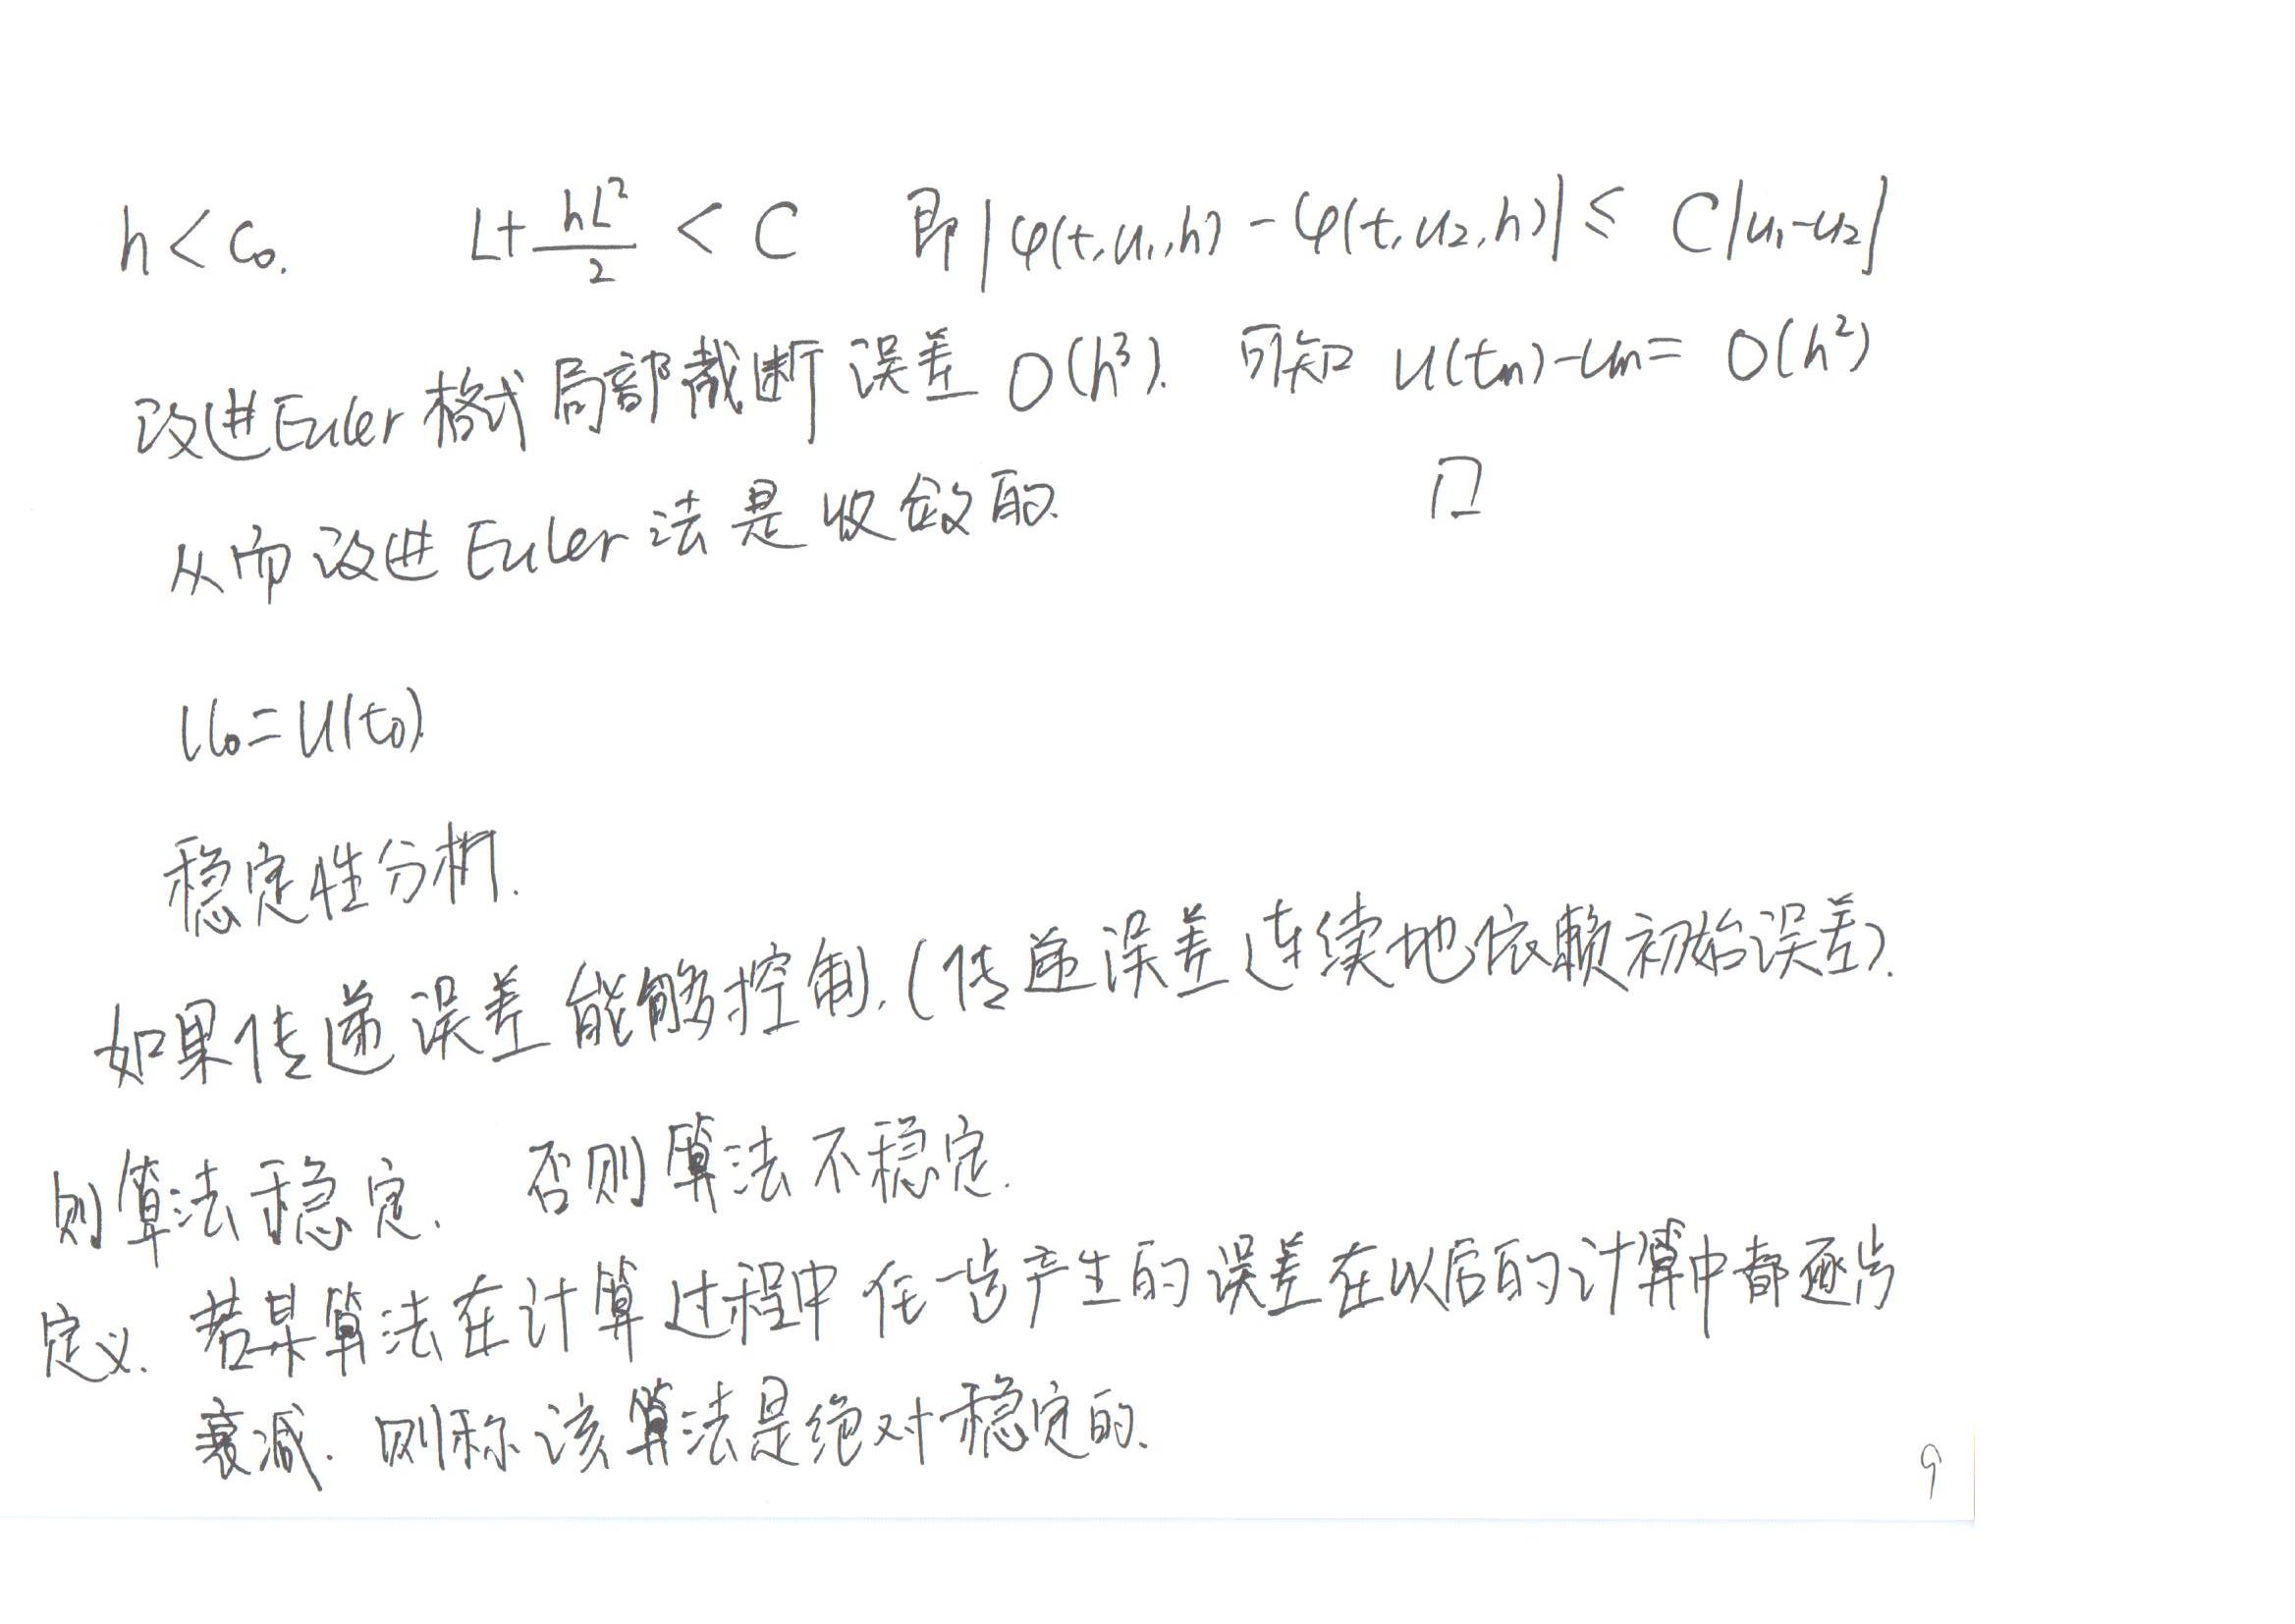 h < c₀. L + hL²/2 < C 即 |φ(t,u₁,h) - φ(t,u₂,h)| ≤ C|u₁-u₂|
改进Euler格式局部截断误差 O(h³). 可知 u(tₙ)-uₙ = O(h²)
从而改进Euler法是收敛的. □
u₀=u(t₀).
稳定性分析.
如果传递误差能够控制.(传递误差连续地依赖初始误差).
则算法稳定. 否则算法不稳定.
定义. 若某算法在计算过程中任一步产生的误差在以后的计算中都逐步
衰减. 则称该算法是绝对稳定的.
9